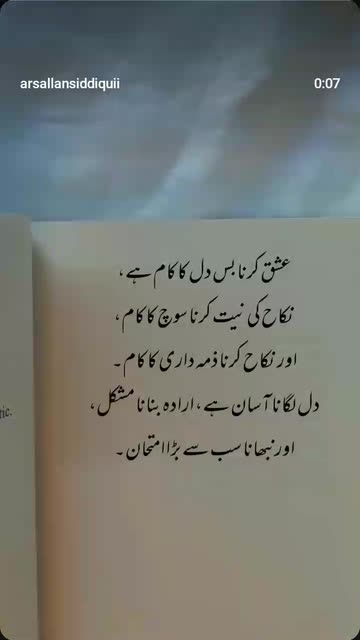 arsallansiddiquii
0:07
عشق کرنا بس دل کا کام ہے،
نکاح کی نیت کرنا سوچ کا کام،
اور نکاح کرنا ذمہ داری کا کام۔
دل لگانا آسان ہے، ارادہ بنانا مشکل،
اور نبھانا سب سے بڑا امتحان۔
tic.